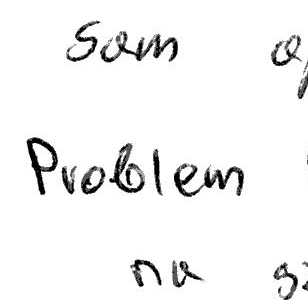 Sam
Problem
na